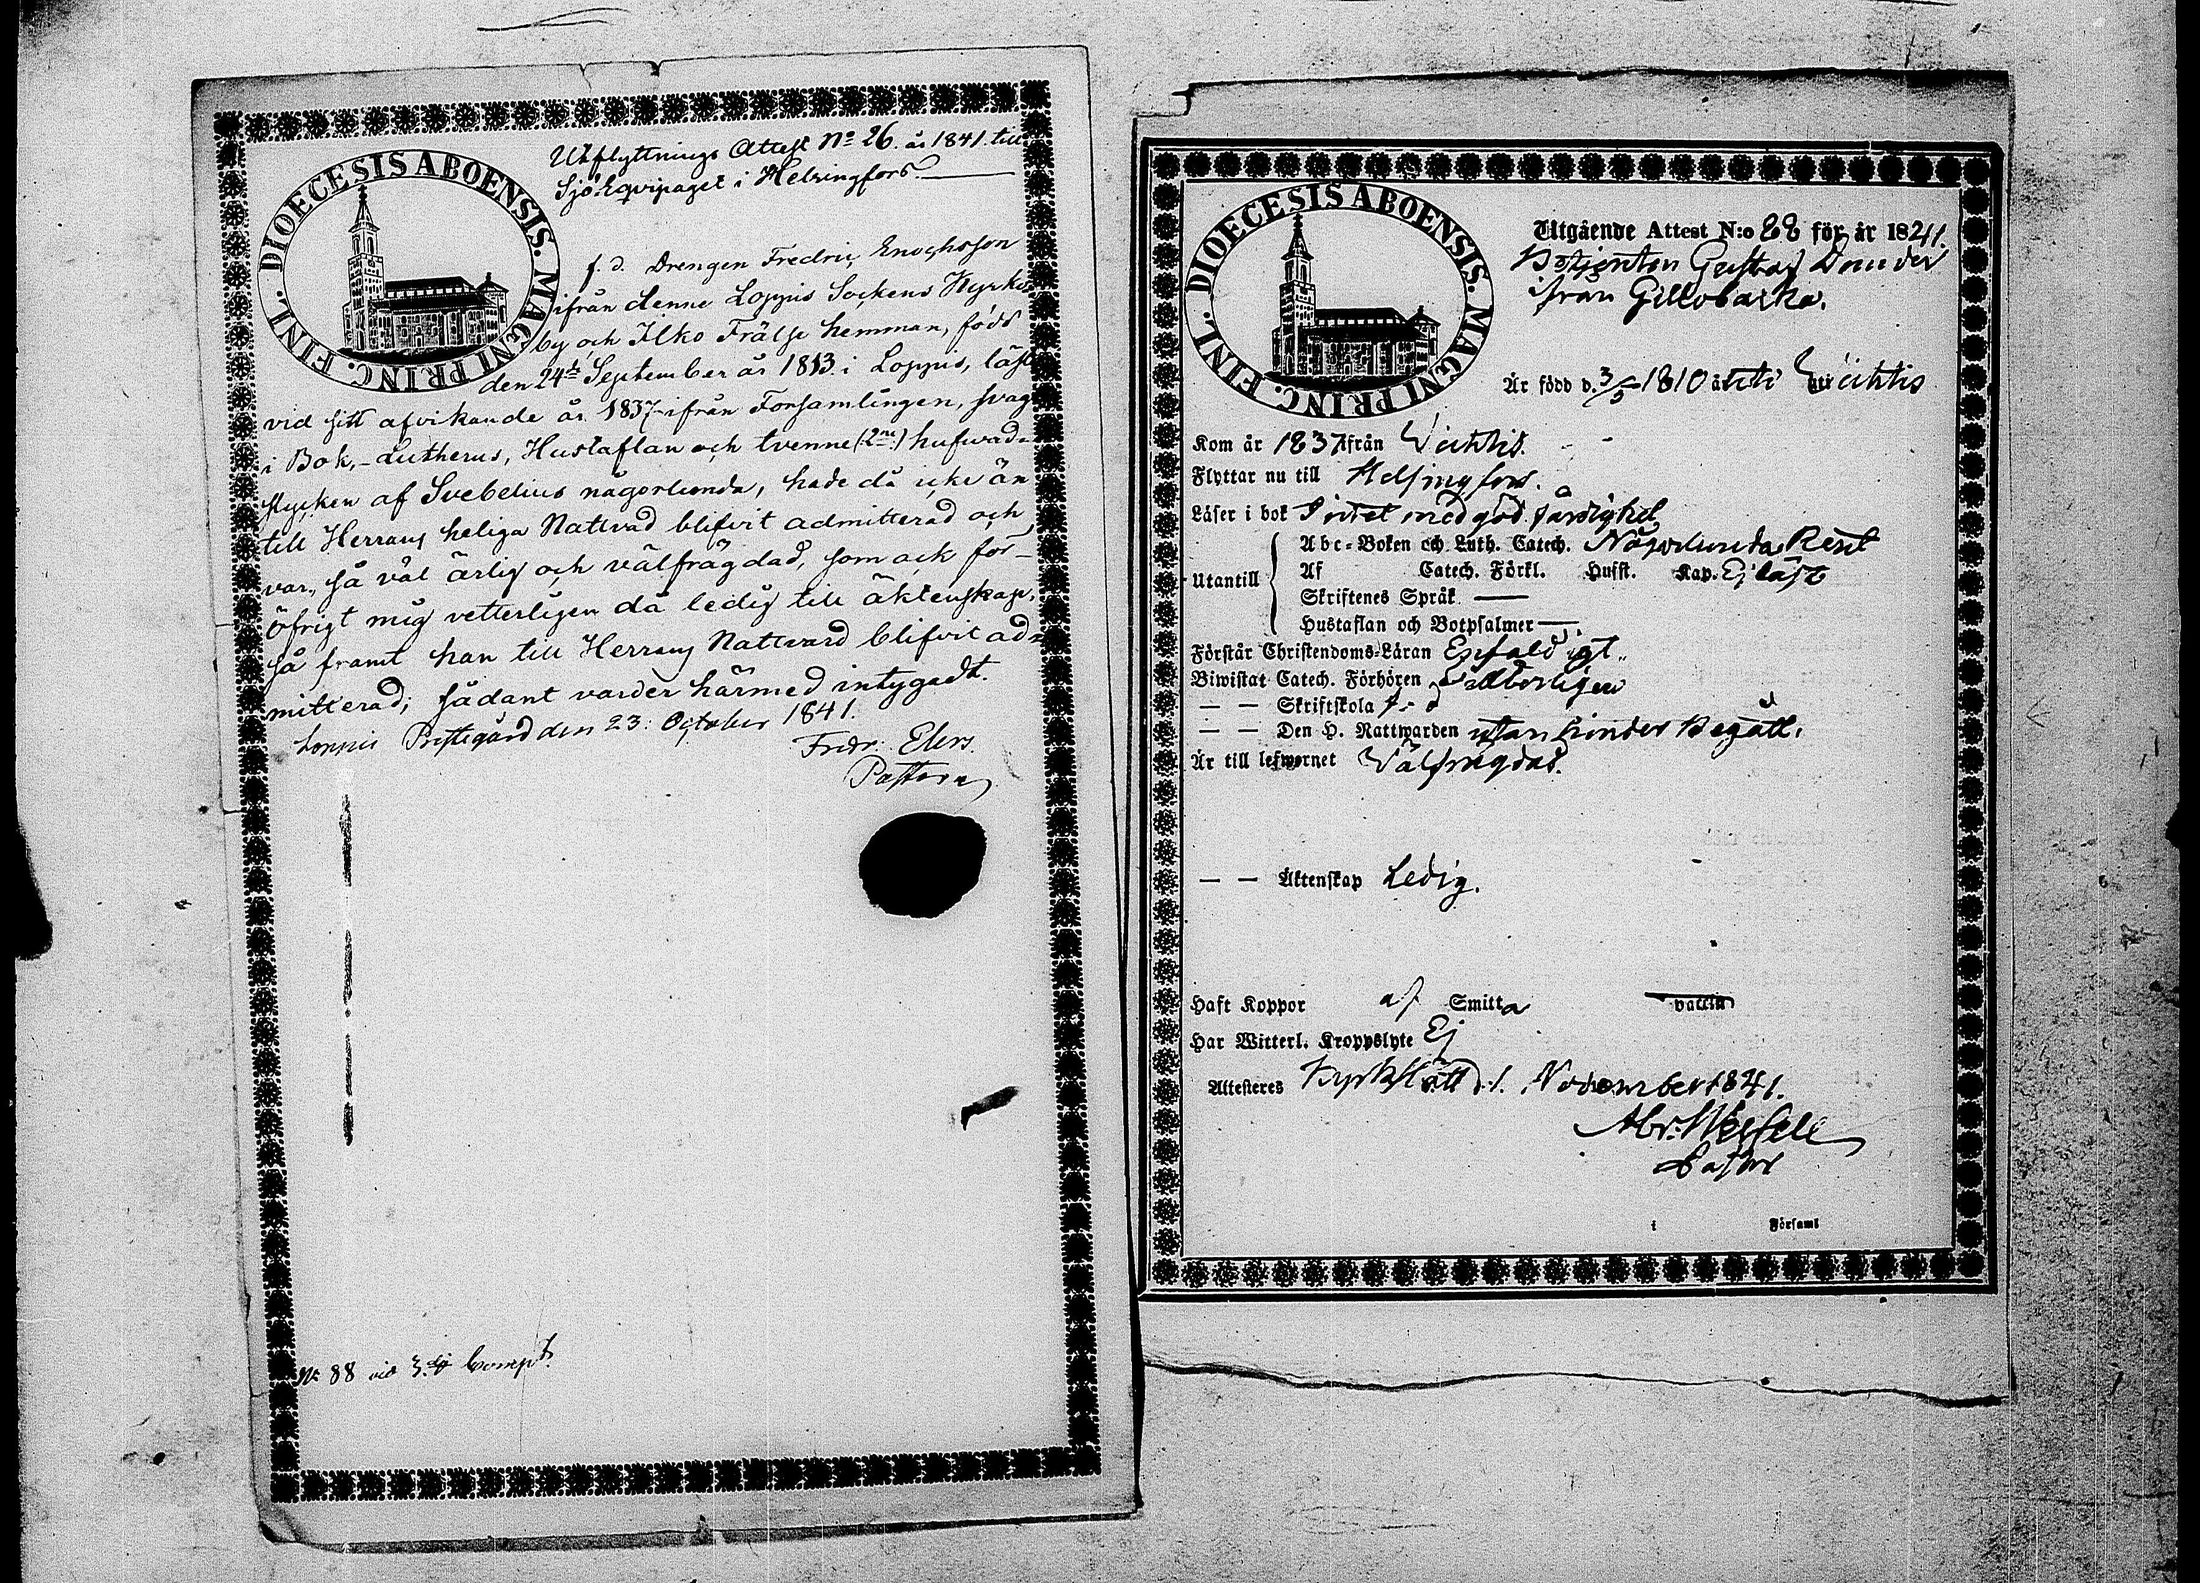 DIOECESIS ABOENSIS. MAGNI PRINC. FINL.
Utflyttnings Attest No 26. år 1841. till
Sjö Eqvipaget i Helsingfors.
f. d. Drengen Fredric Enochsson
ifrån denne Loppis Sockens Kyrko
by och Ilko Frälse hemman, född
den 24de September år 1813 i Loppis, läst
vid sitt afvikande år 1837 ifrån Församlingen, svagt
i Bok, Lutherus, Hustaflan och tvenne (2ne) hufwud-
stycken af Svebelius någorlunda, hade då icke än
till Herrans heliga Nattvard blifvit admitterad och
var, så väl ärlig och välfrägdad, som ock för-
öfrigt mig vetterligen då ledig till äktenskap,
så framt han till Herrans Nattvard blifvit ad-
mitterad; sådant varder härmed intygadt.
Loppis Prestegård den 23. October 1841.
Fredr. Elers
Pastor
No 88 vid 3.dje Comp.t
DIOECESIS ABOENSIS. MAGNI PRINC. FINL.
Utgående Attest N:o 88 för år 1841.
Betjenten Gustaf Dunder
från Gillobacka.
Är född d. 3/5 1810 uti Wichtis
Kom år 1837 ifrån Wichtis.
Flyttar nu till Helsingfors.
Läser i bok med god färdighet
Utantill
Abc-Boken och Luth. Catech. Någorlunda Rent
Af Catech. Förkl. Hufst. Kap. Ej läst
Skriftenes Språk —
Hustaflan och Botpsalmer —
Förstår Christendoms-Läran Enfaldigt
Biwistat Catech. Förhören
— — Skriftskola
— — Den H. Nattwarden utan hinder Begått.
Är till lefwernet Välfrägdad.
— — Äktenskap Ledig.
Haft Koppor af Smitta vaccin
Har Witterl. Kroppslyte Ej
Attesteres Kyrkslätt d. 1. November 1841.
Pastor
i Församl